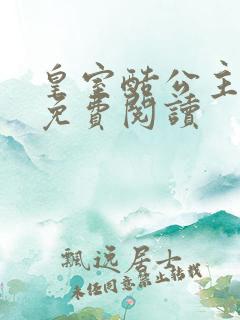 皇室酷公主
免費閱讀
飄远居士
未经同意禁止转载